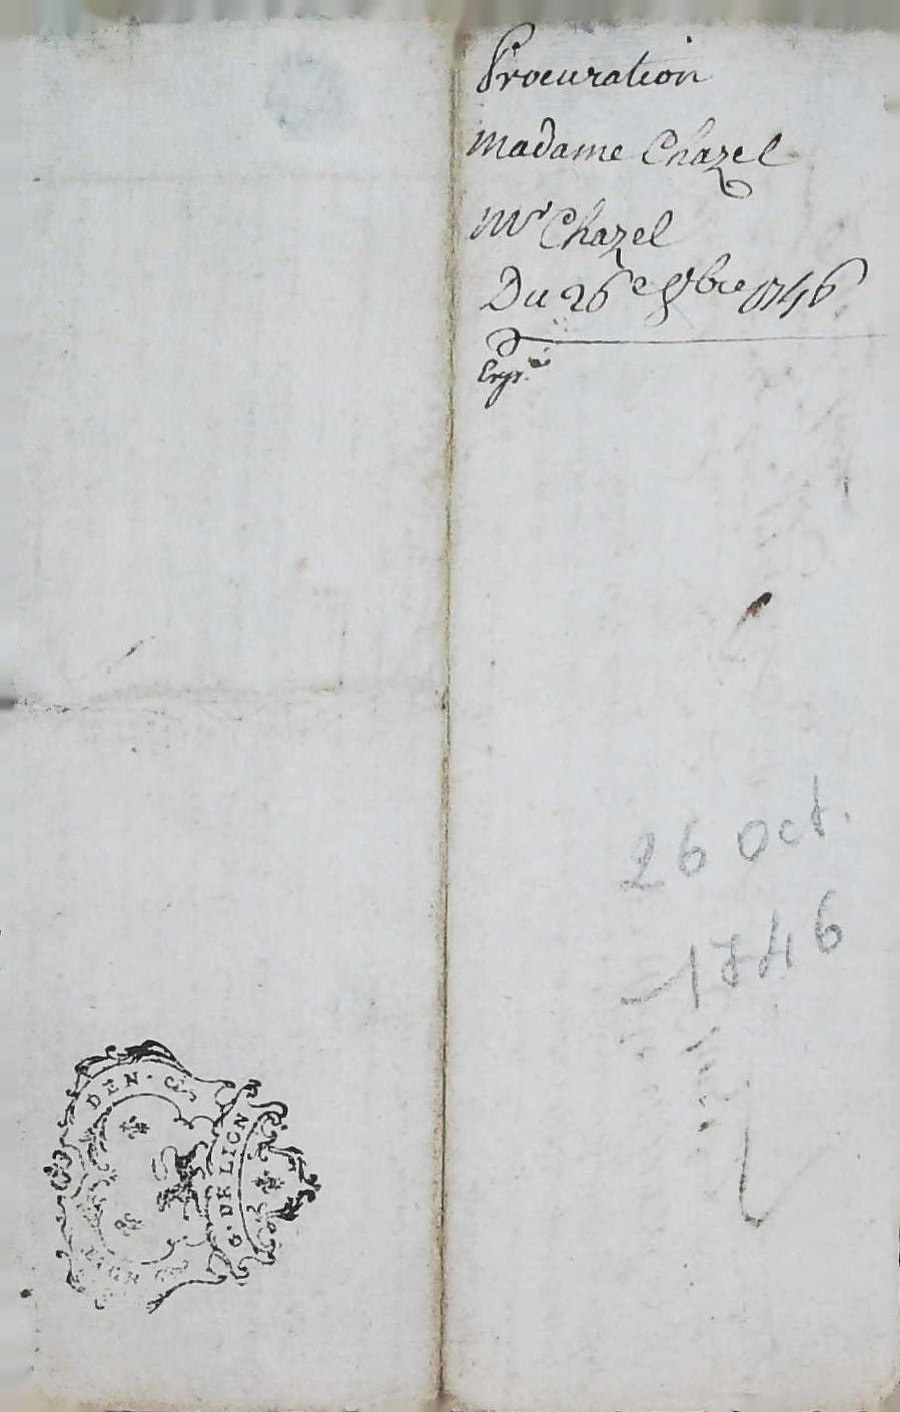 Procuration
Madame Chazel
Mr Chazel
Du 26e 8bre 1746
26 Oct.
1746
DEN
G. DE LION